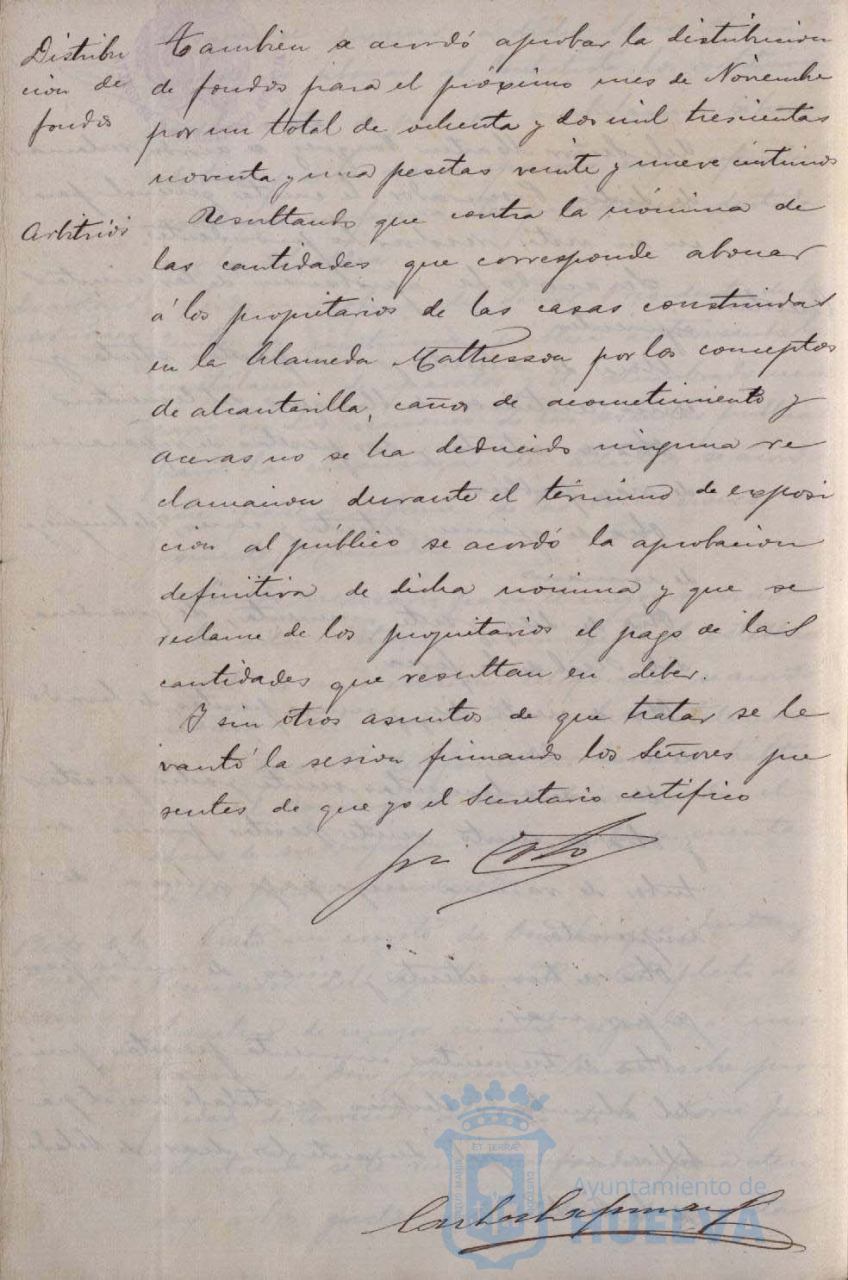 Distribu
cion de
fondos
Tambien se acordó aprobar la distribucion
de fondos para el próximo mes de Noviembre
por un total de ochenta y dos mil trescientas
noventa y una pesetas veinte y nueve centimos
Arbitrios
Resultando que contra la nómina de
las cantidades que corresponde abonar
á los propietarios de las casas construidas
en la Alameda Mathesson por los conceptos
de alcantarilla, caños de acometimiento y
aceras no se ha deducido ninguna re
clamacion durante el término de exposi
cion al público se acordó la aprobacion
definitiva de dicha nómina y que se
reclame de los propietarios el pago de las
cantidades que resultan en deber.
Y sin otros asuntos de que tratar se le
vantó la sesion firmando los Señores pre
sentes de que yo el Secretario certifico
Ayuntamiento de
HUELVA